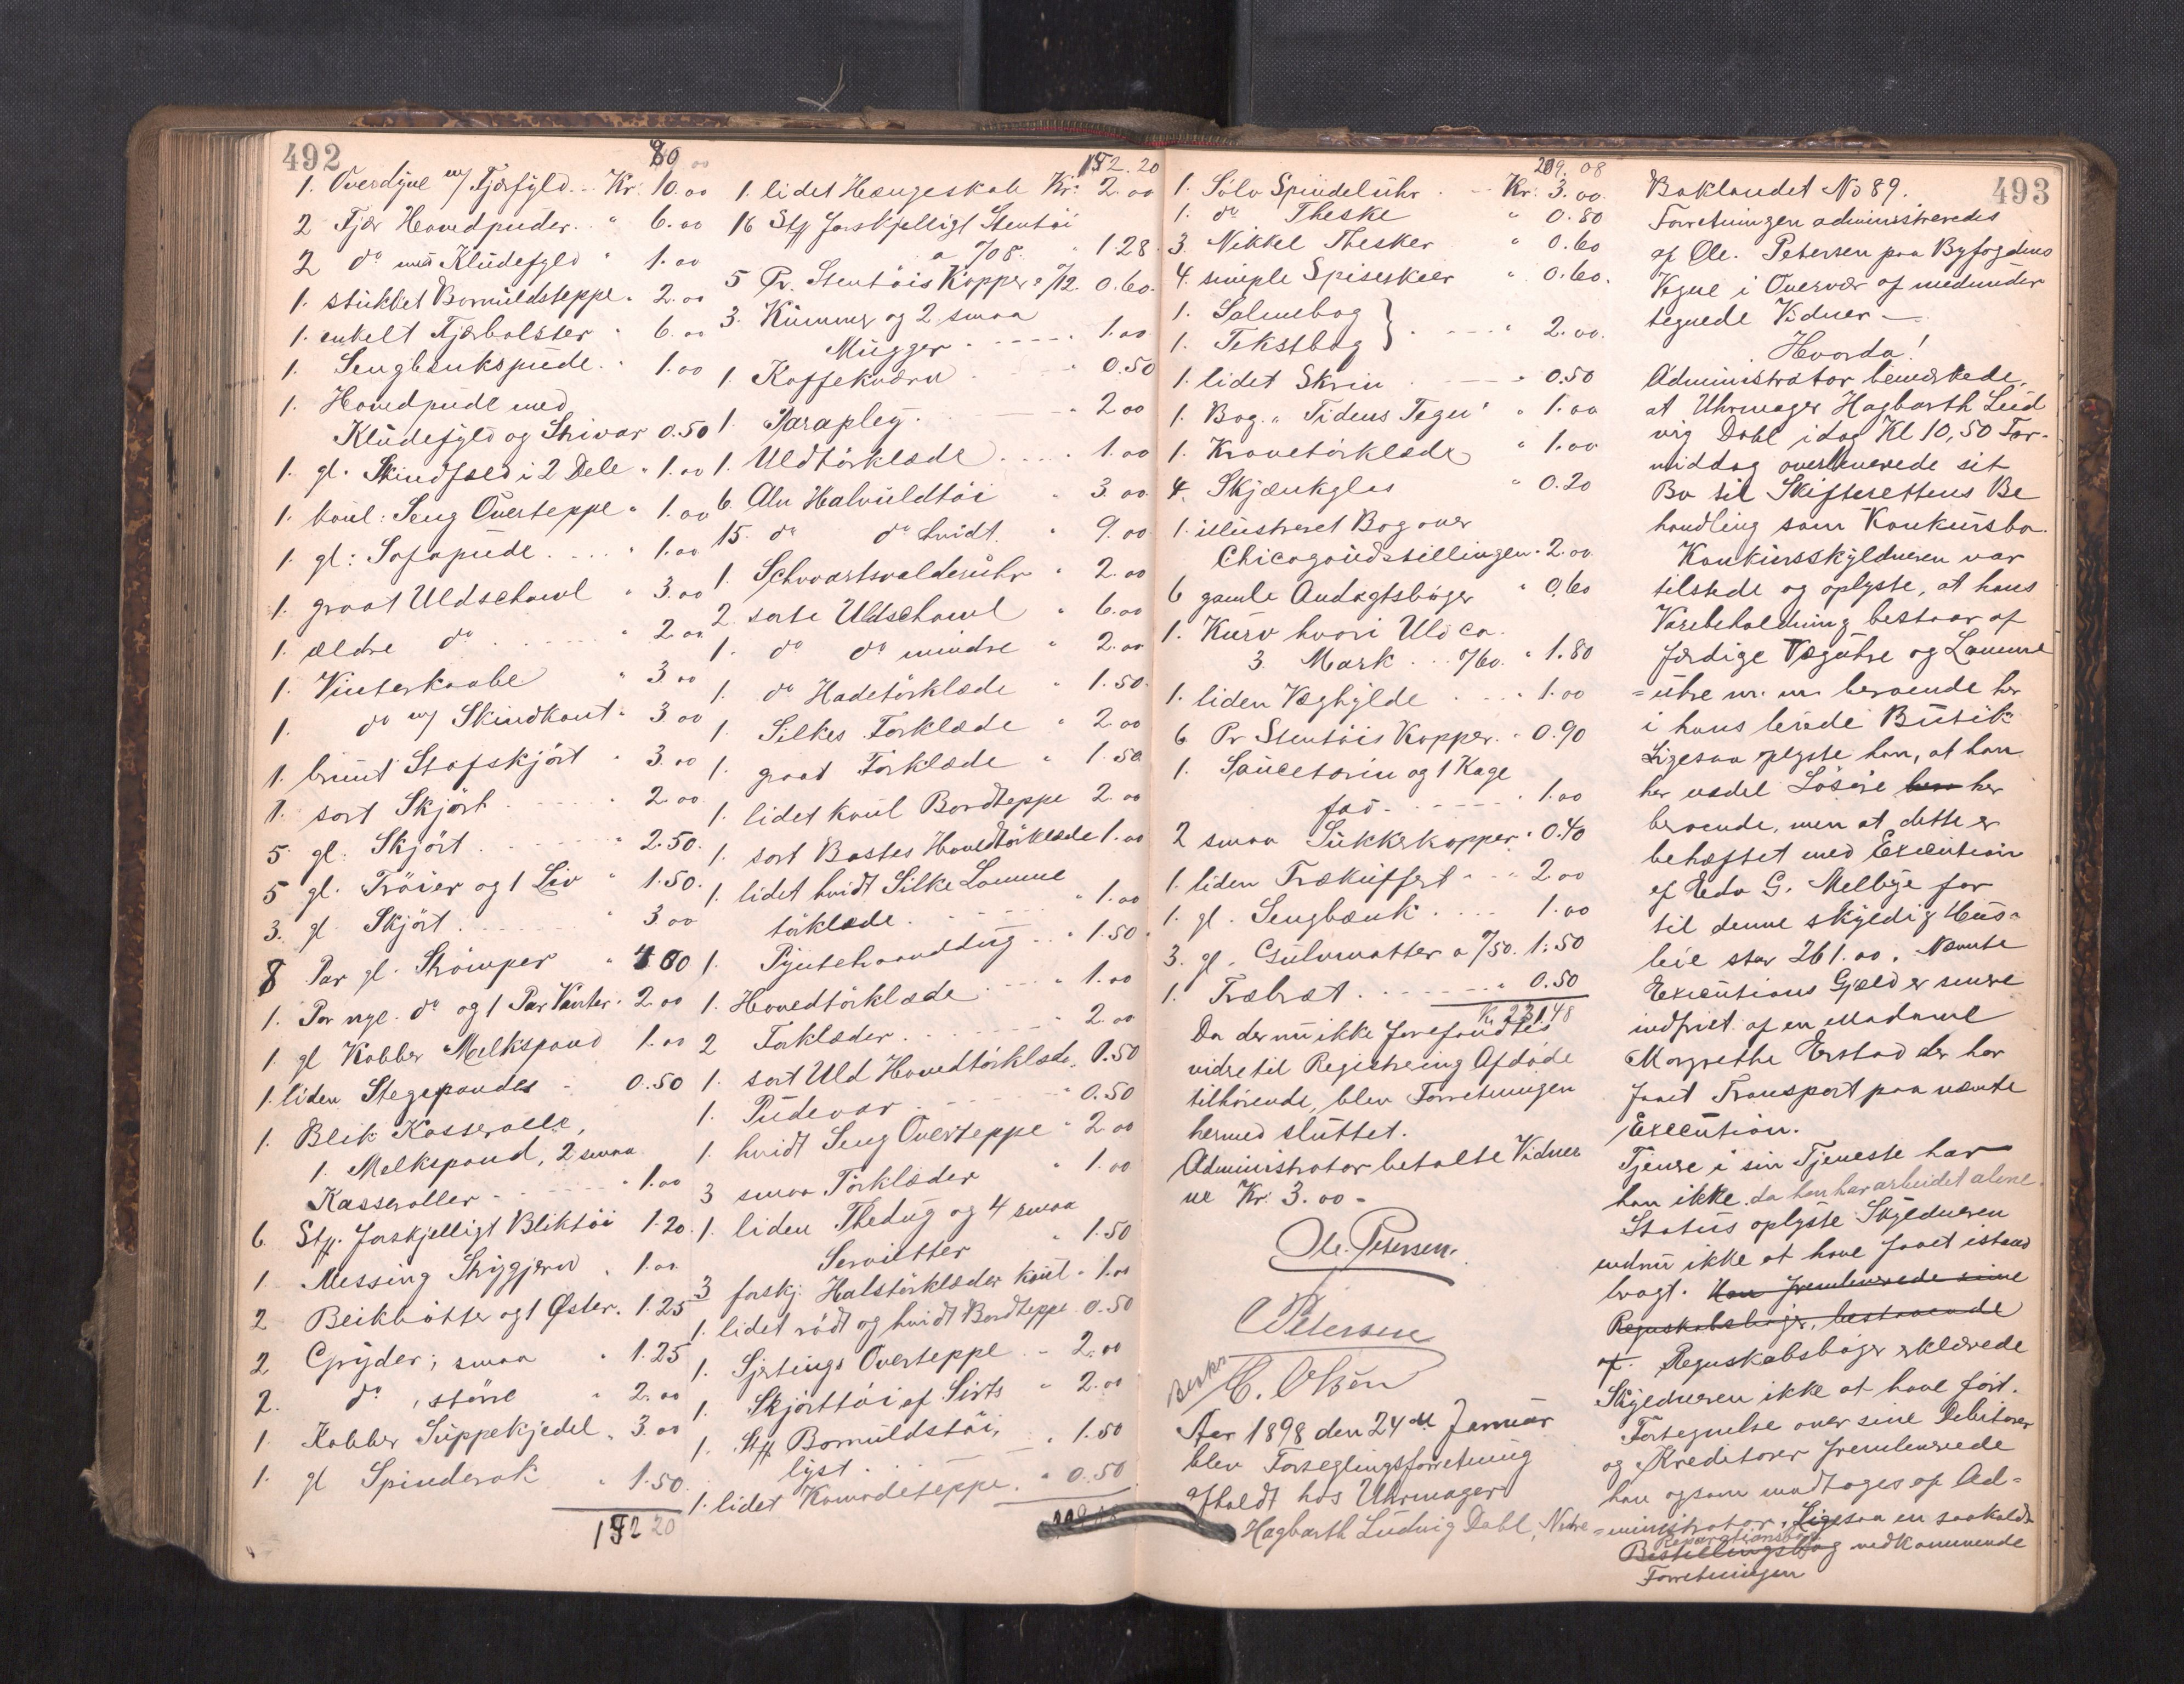 492
80 00
1. Overdyne m/ Fjærfyld Kr: 10.00
2 Fjær Hovedpuder " 6.00
2 do med Kludefyld " 1.00
1. stukket Bomuldsteppe " 2.00
1. enkelt Fjærbolster " 6.00
1. Sengbænkspude " 1.00
1. Hovedpude med
Kludefyld og Strivar 0.50
1. gl. Skindfæld i 2 Dele " 1.00
1. koul: Seng Overteppe " 1.00
1. gl: Sofapude " 1.00
1. graat Uldschawl " 3.00
1. ældre do " 2.00
1. Vinterkaabe " 3.00
1. do m/ Skindkant " 3.00
1. brunt Stofskjört " 3.00
1. sort Skjört " 2.00
5 gl: Skjört " 2.50
5 gl. Tröier og 1 Liv " 1.50
3. gl. Skjört " 3.00
8 Par gl. Strömper " 4.00
1. Par nye do og 1 Par Vanter " 2.00
1. gl Kobber Melkspand 1.00
1. liden Stegepande " 0.50
1. Blik Kasserolle,
1. Melkspand, 2 smaa
Kasseroller " 1.00
6 Stk. forskjelligt Bliktöi 1.20
1 Messing Strygjern " 1.00
2 Blikbötter og 1 Øster. 1.25
2 Gryder, smaa " 1.25
2. do, större " 2.00
1 Kobber Suppekjedel " 3.00
1. gl Spinderok " 1.50
152 20
152.20
1. lidet Hængeskab Kr: 2.00
16 Stk forskjelligt Stentöi
a "/08 " 1.28
5 Pr. Stentöis Kopper a "/12. 0.60
3. Kummer og 2 smaa
Mugger " 1.00
1. Kaffekværn " 0.50
1. Paraply " 2.00
1. Uldtörklæde " 1.00
6 Aln Halvuldtöi " 3.00
15. do do hvidt " 9.00
1. Schvartsvalderuhr " 2.00
2 sorte Uldschawl " 6.00
1. do do mindre " 2.00
1. do Hadetörklæde " 1.50
1. Silkes Forklæde " 2.00
1. graat Forklæde " 1.50
1. lidet koul Bordteppe 2.00
1. sort Bastes Hovedtörklæde 1.00
1. lidet hvidt Silke Lomme
törklæde " 1.00
1. Pyntehaanddug " 1.50
1. Hovedtörklæde " 1.00
2 Forklæder " 2.00
1. sort Uld Hovedtörklæde 1.50
1. Pudevar " 0.50
1. hvidt Seng Overteppe " 2.00
3 smaa Törklæder " 1.00
1. liden Thedug og 4 smaa
Servietter " 1.50
3 forskj. Halstörklæder koul " 1.00
1. lidet rödt og hvidt Bordteppe 0.50
1. Sjertings Overteppe " 2.00
1. Skjörttöi af Sirts " 2.00
1. Stk Bomuldstöi,
lyst " 1.50
1. lidet Komodeteppe " 0.50
493
209.08
1. Sölv Spindeluhr Kr: 3.00
1. do Theske " 0.80
3. Nikkel Thesker " 0.60
4. simple Spiseskeer " 0.60
1. Salmebog
1. Tekstbog } " 2.00
1. lidet Skrin " 0.50
1. Bog "Tidens Tegn" " 1.00
1. Kravetörklæde " 1.00
4. Skjænkglas " 0.20
1. illustreret Bog over
Chicagoudstillingen " 2.00
6 gamle Andagtsböger " 0.60
1. Kurv hvori Uld ca.
3 Mark "/60. " 1.80
1. liden Væghylde " 1.00
6 Pr Stentöis Kopper " 0.90
1. Saucetærin og 1 Kage
fad " 1.00
2 smaa Sukkerkopper " 0.40
1. liden Trækuffert " 2.00
1. gl. Sengbænk 1.00
3. gl. Gulvmatter a "/50. 1.50
1. Træbræt " 0.50
Kr 231.48
Da der nu ikke forefandtes
vidre til Registrering Afdöde
tilhörende, blev Forretningen
hermed sluttet.
Administrator betalte Vidner
ne Kr: 3.00 -
Ole. Petersen.
C Petersen
C. Olsen
Aar 1898 den 24de Januar
blev Forseglingsforretning
afholdt hos Uhrmager
Hagbarth Ludvig Dahl, Nedre
Baklandet No 89.
Forretningen administreredes
af Ole. Petersen paa Byfogdens
Vegne i Overvær af medunder
tegnede Vidner —
Hvorda!
Administrator bemærkede,
at Uhrmager Hagbarth Lud
vig Dahl idag Kl 10,50 For-
middag overleverede sit
Bo til Skifterettens Be
handling som Konkursbo.
Konkursskyldneren var
tilstede og oplyste, at hans
Varebeholdning bestaar af
færdige Væguhre og Lomme
=uhre m. m. beroende her
i hans leiede Butik
Ligesaa oplyste han, at han
her endel Lösöre her
beroende, men at dette er
behæftet med Execution
af Edv G. Melbye for
til denne skyldig Hus-
leie stor 261.00. Nævnte
Executions Gjæld er senere
indfriet af en Madame
Margrethe Erstad der har
faaet Transport paa nævnte
Execution.
Tjenere i sin Tjeneste har
han ikke da han har arbeidet alene.
Status oplyste Skyldneren
endnu ikke at have faaet istand
bragt. Han fremleverede sine
Regnskabsböger, bestaaende
af. Regnskabsböger erklærede
Skyldneren ikke at have fört.
Fortegnelse over sine Debitorer
og Kreditorer fremleverede
han ogsom modtoges af Ad-
=ministrator. Ligesaa en saakaldt
Reparationsbog
Bestillingsbog vedkommende
Forretningen